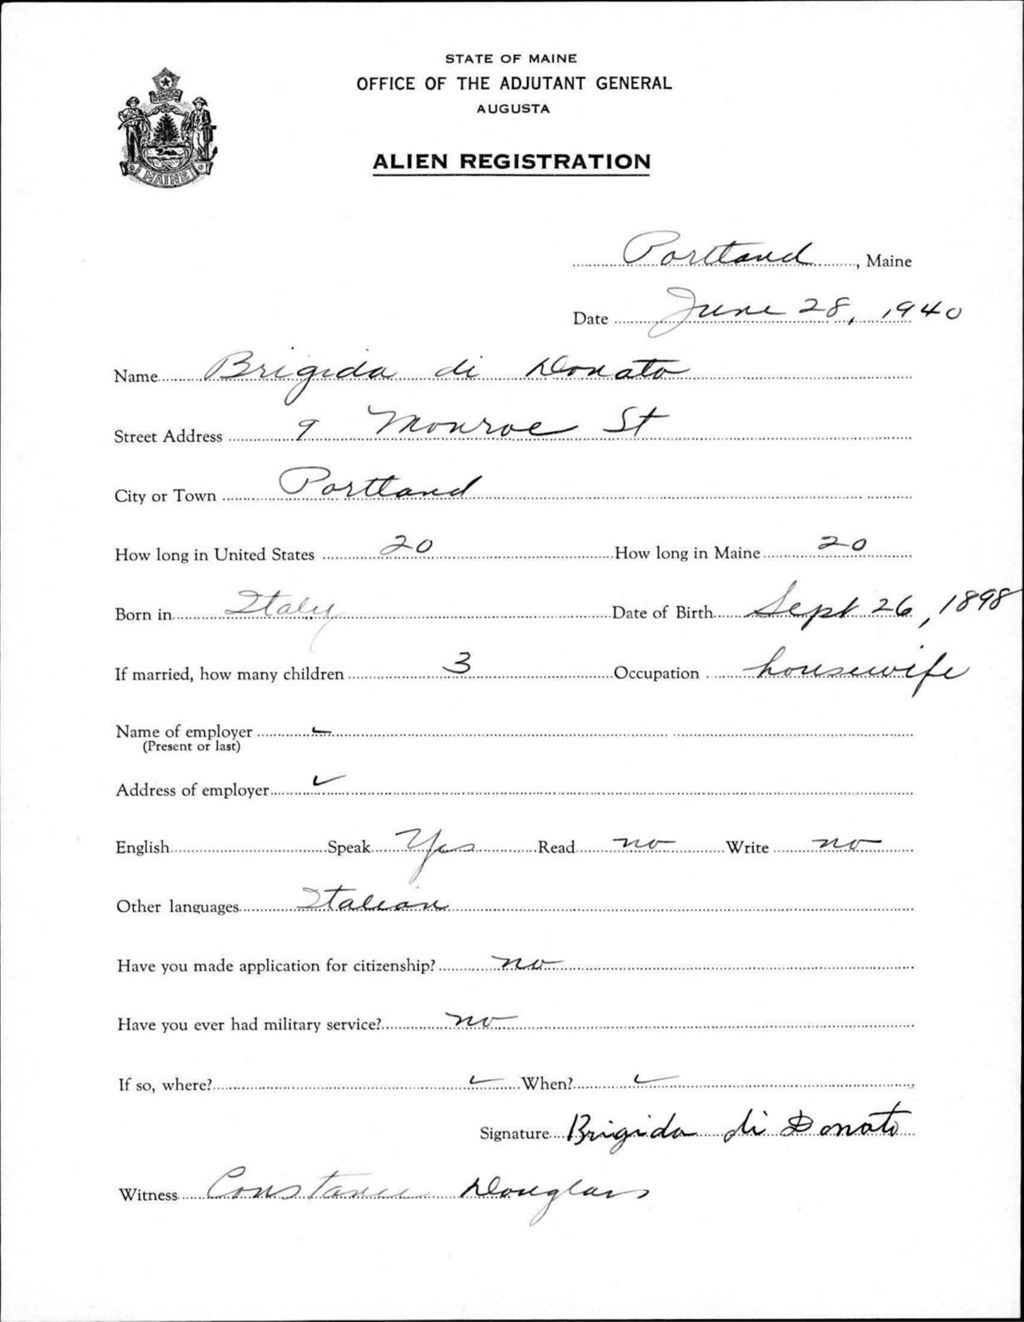 STATE OF MAINE
OFFICE OF THE ADJUTANT GENERAL
AUGUSTA
ALIEN REGISTRATION
MAINE
Portland, Maine
Date June 28, 1940
Name Brigida di Donato
Street Address 9 Monroe St
City or Town Portland
How long in United States 20 How long in Maine 20
Born in Italy Date of Birth Sept 26, 1898
If married, how many children 3 Occupation housewife
Name of employer
(Present or last)
Address of employer
English Speak Yes Read no Write no
Other languages Italian
Have you made application for citizenship? no
Have you ever had military service? no
If so, where? When?
Signature Brigida di Donato
Witness Constance Douglass